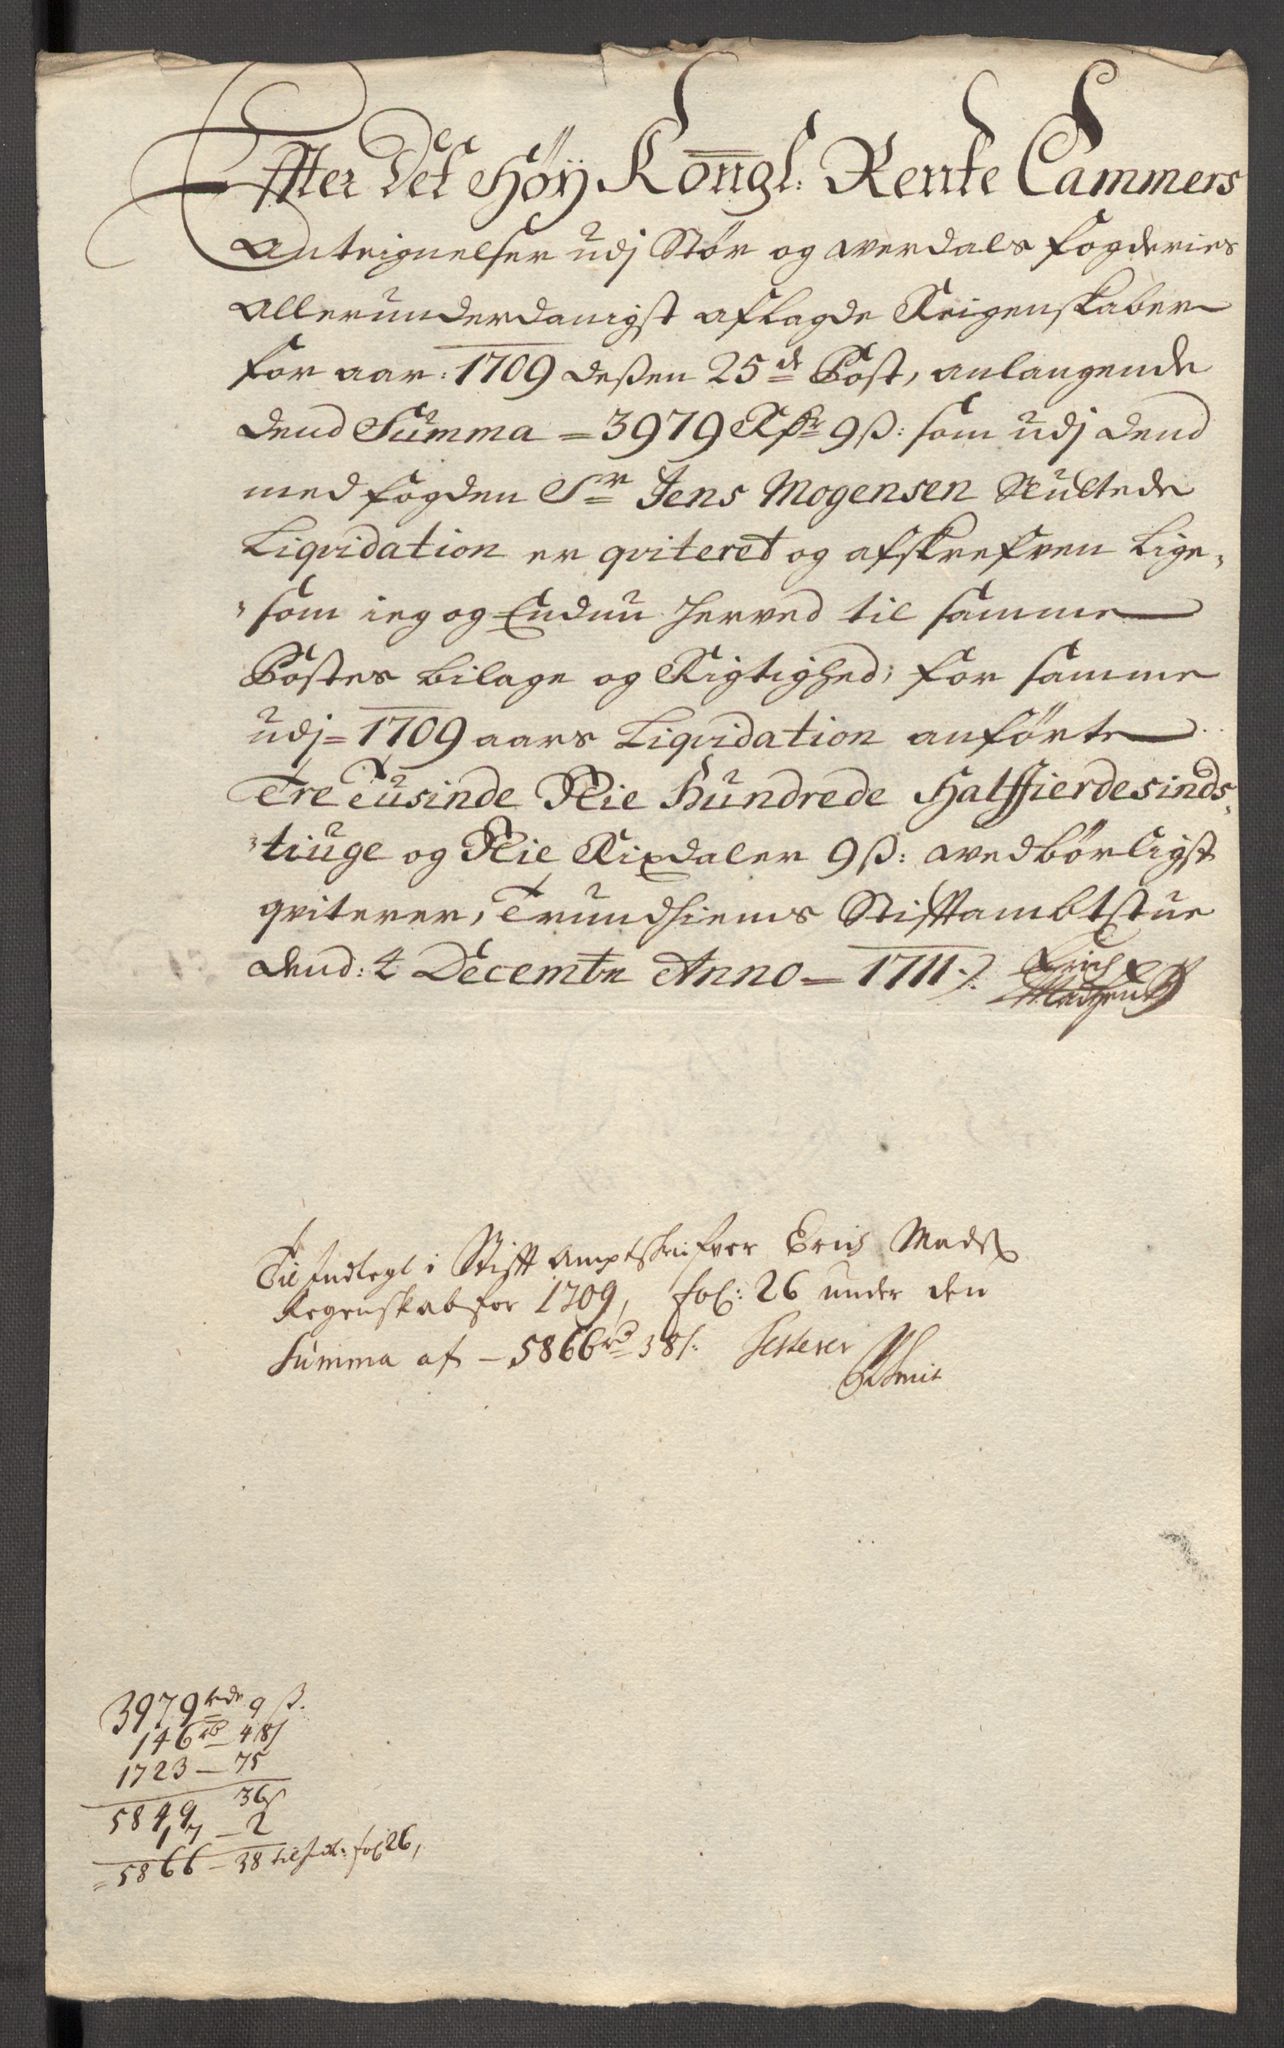 Effter Det Høÿ Kongl: Rente Cammers
Anteignelser udj Stør og werdals fogderies
Allerunderdanigst aflagde Reigenskaber
for aar: 1709 deßen 25de Post, anlangende
dend Summa = 3979 Rdr 9ß: som udj dend
med fogden Sr Jens Mogensen Sluttede
Liqvidation er qviteret og afskrefven Lige-
som ieg og Endnu herved til samme
Postes bilage og Rigtighed, for samme
udj = 1709 aars Liqvidation anførte
Tre Tusinde Nie Hundrede Halffierdesinds-
tiuge og Nie Rixdaler 9ß: wedbørligst
qviterer, Trundhiems Stifftambtstue
dend: 4 Decembr Anno = 1711 /.
Erich Madsen
Til Indlegt i Stifft Amptskrifver Erich Mads:
Regenskab for 1709, fol: 26 under den
Summa af - 5866 rd 38ß: Testerer
Smit
3979 rdr 9 ß.
146 rd 48ß
1723 - 75
5849 36ß
17 - 2
= 5866 - 38 fol 26,